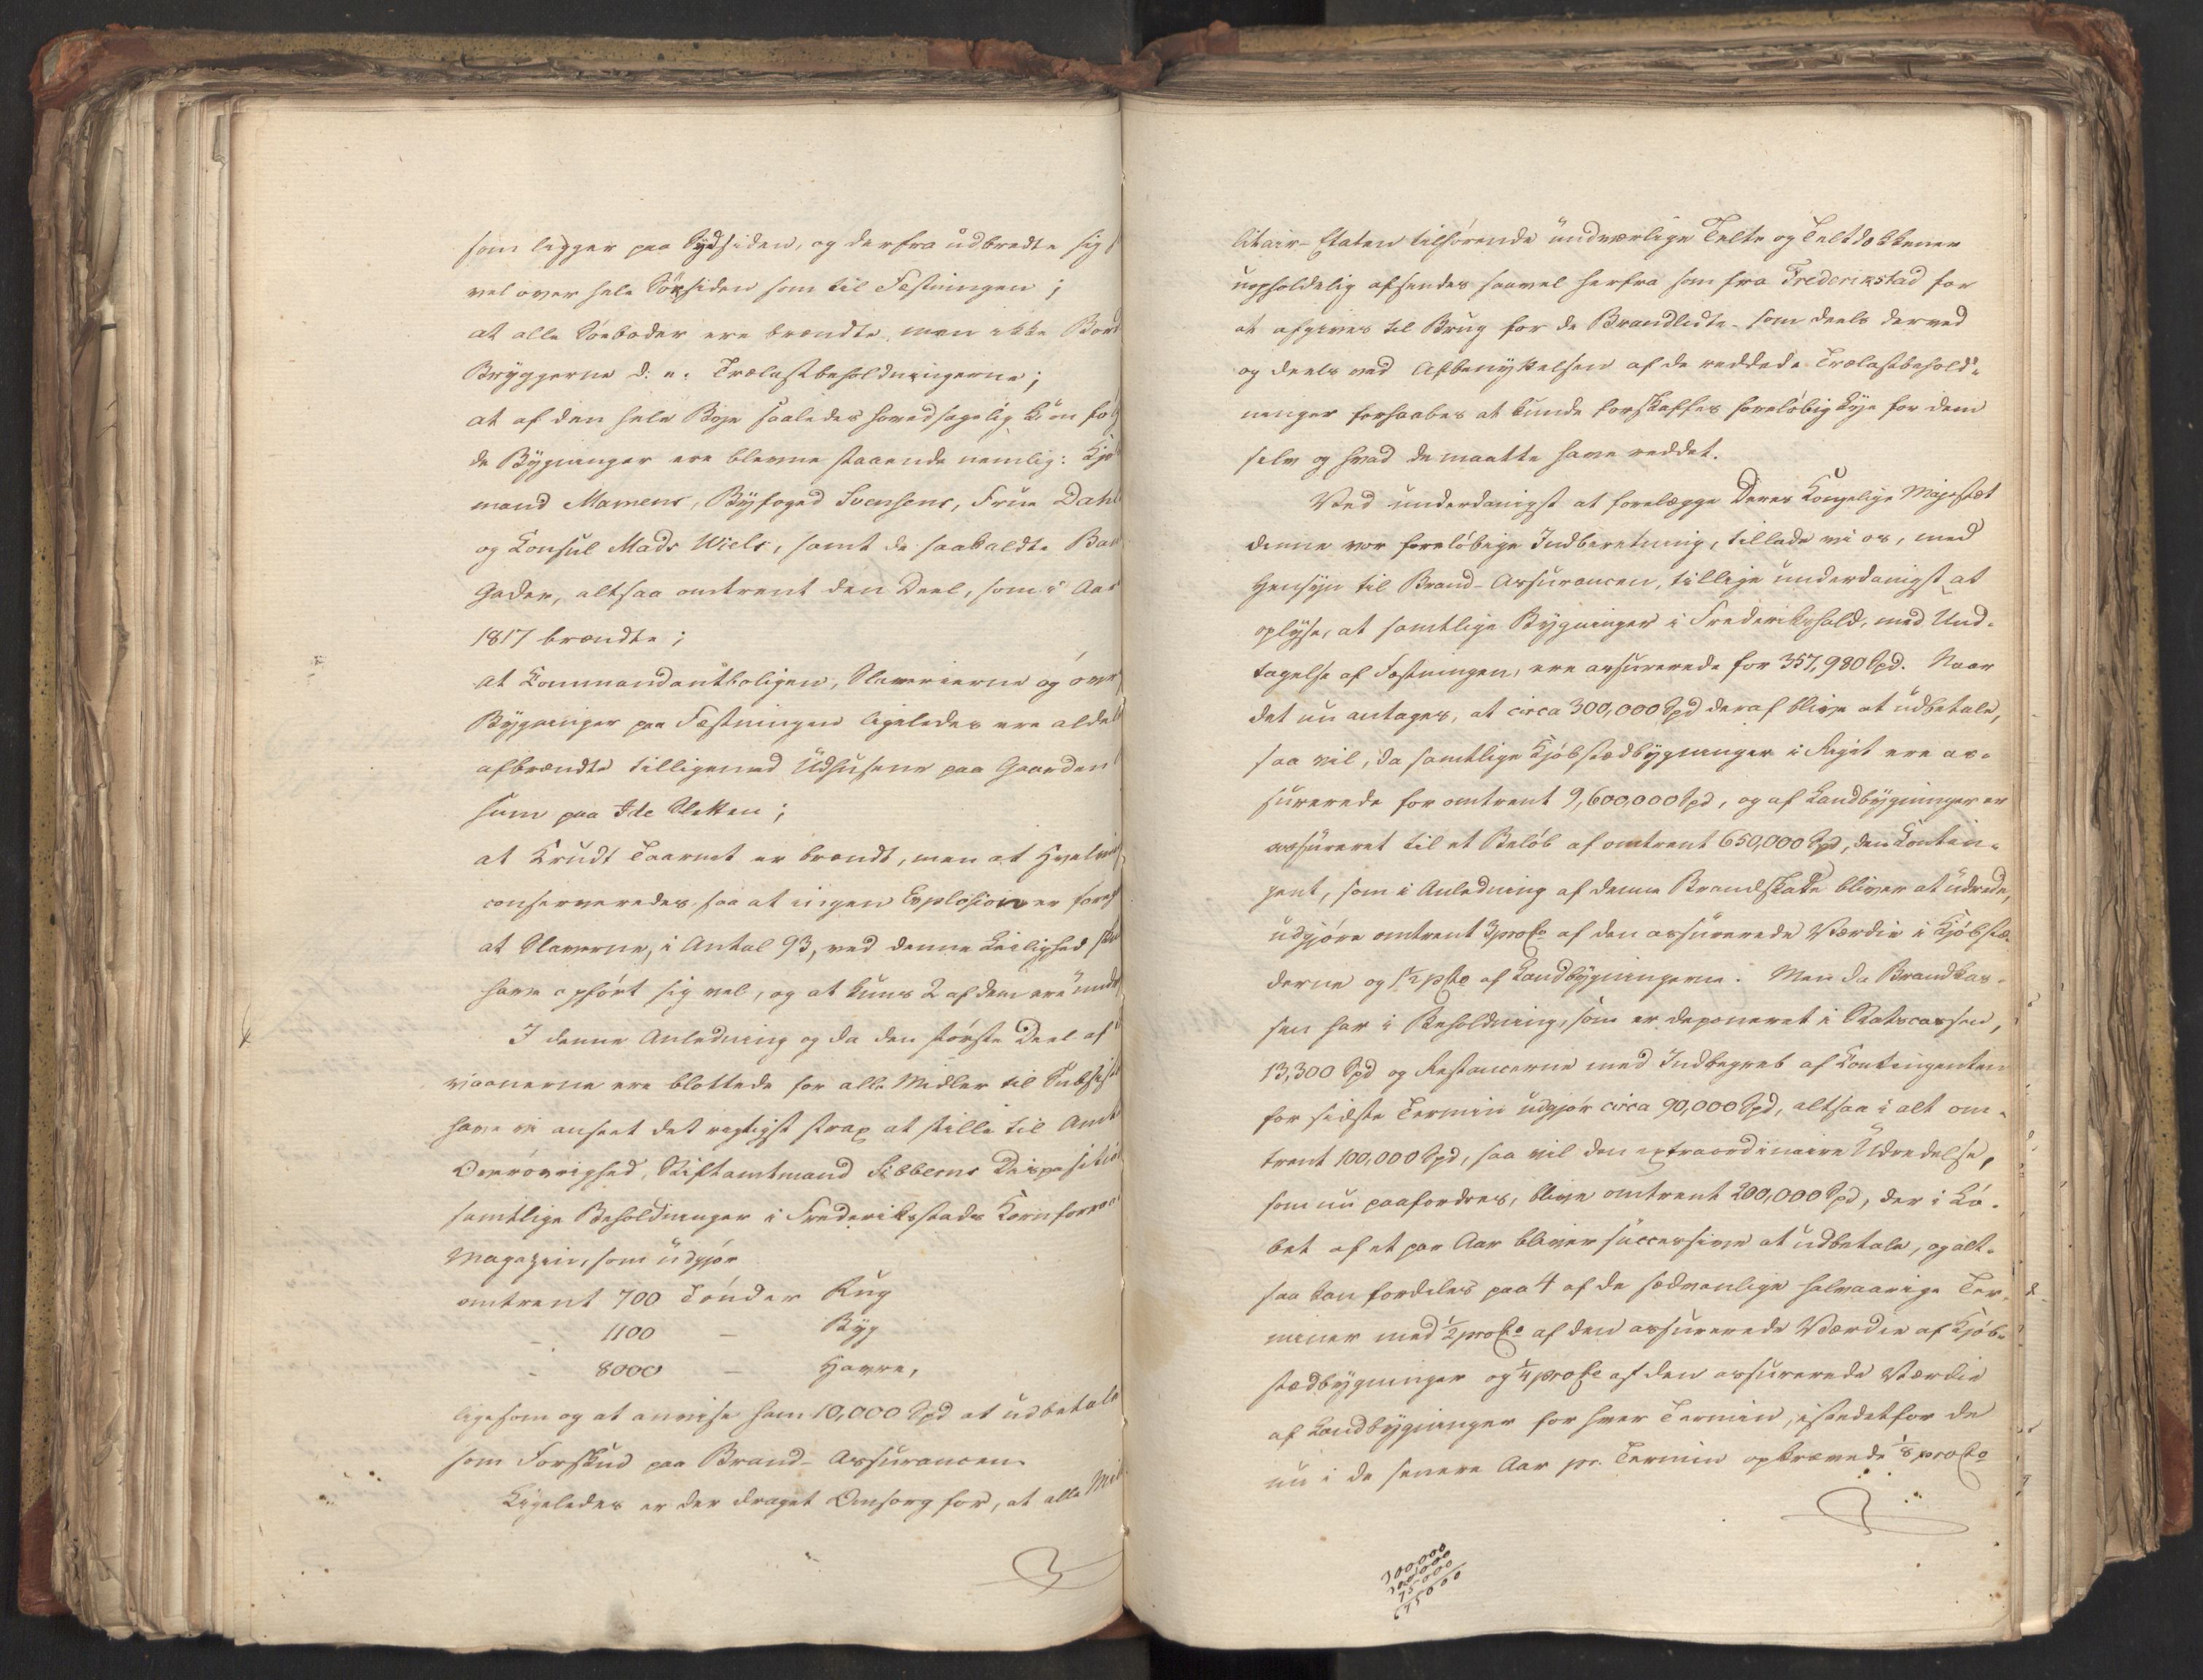 som ligger paa Sydsiden, og derfra udbredte sig
vel over hele Sørsiden som til Fæstningen;
at alle Søeboder ere brændte, men ikke Bord
Bryggerne d: e: Trælastbeholdningerne;
at af den hele Bye saaledes hovedsagelig kun føl
de Bygninger ere blevne staaende nemlig: Kjøb
mand Mamens, Byfoged Svensens, Frue Dahl
og Konsul Mads Wiels, samt de saakaldte Ban
Gader, altsaa omtrent den Deel, som i Aar
1817 brændte;
at Kommandantboligen, Slaverierne og øvr
Bygninger paa Fæstningen ligeledes ere aldel
afbrændte tilligemed Udhusene paa Gaarden
hum paa Ide Sletten;
at Krudt Taarnet er brændt, men at Hvælvin
conserveredes saa at ingen Explosion er foreg
at Slaverne, i Antal 93, ved denne Leilighed skal
have opført sig vel, og at kuns 2 af dem ere und
I denne Anledning og da den største Deel af
vaanerne ere blottede for alle Midler til Subsist
have vi anseet det rigtigst strax at stille til Amt
Overøvrighed, Stiftamtmand Sibberns Disposition
samtlige Beholdninger i Frederiksstads Kornforraad
Magazin, som udgjør
omtrent 700 Tønder Rug
- 1100 - Byg
- 8000 - Havre,
ligesom og at anvise ham 10,000 Spd at udbetale
som Forskud paa Brand-Assurancen.
Ligeledes er der draget Omsorg for, at alle Mil
litair-Etaten tilhørende undværlige Telte og Teltdækkener
uopholdelig afsendes saavel herfra som fra Frederikstad for
at afgives til Brug for de Brandlidte - som deels derved
og deels ved Afbenyttelsen af de reddede Trælastbehold-
ninger forhaabes at kunde forskaffes foreløbig Lye for dem
selv og hvad de maatte have reddet.
Ved underdanigst at forelægge Deres Kongelige Majestæt
denne vor foreløbige Indberetning, tillade vi os, med
Hensyn til Brand-Assurancen, tillige underdanigst at
oplyse, at samtlige Bygninger i Frederikshald, med Und-
tagelse af Fæstningen, ere assurerede for 357,980 Spd. Naar
det nu antages, at circa 300,000 Spd deraf blive at udbetale,
saa vil, da samtlige Kjøbstædbygninger i Riget ere as-
surerede for omtrent 9,600,000 Spd, og af Landbygninger er
assureret til et Beløb af omtrent 650,000 Spd, den Kontin-
gent, som i Anledning af denne Brandskade bliver at udrede,
udgjøre omtrent 3 proCto af den assurerede Værdie i Kjøbstæ-
derne og 1½ pCto af Landbygningerne. Men da Brandkas-
sen har i Beholdning, som er deponeret i Statscassen,
13,300 Spd og Restancerne med Indbegreb af Kontingenten
for sidste Termin udgjør circa 90,000 Spd, altsaa i alt om-
trent 100,000 Spd, saa vil den extraordinaire Udredelse,
som nu paafordres, blive omtrent 200,000 Spd, der i Lø-
bet af et par Aar bliver successive at udbetale, og alt-
saa kan fordeles paa 4 af de sædvanlige halvaarige Ter-
miner med ½ proCto af den assurerede Værdie af Kjøb-
stædbygninger og ¼ proCto af den assurerede Værdie
af Landbygninger for hver Termin, istedetfor de
nu i de senere Aar pr. Termin opkrævede ⅛ proCto
300,000
300,000
75000
675000